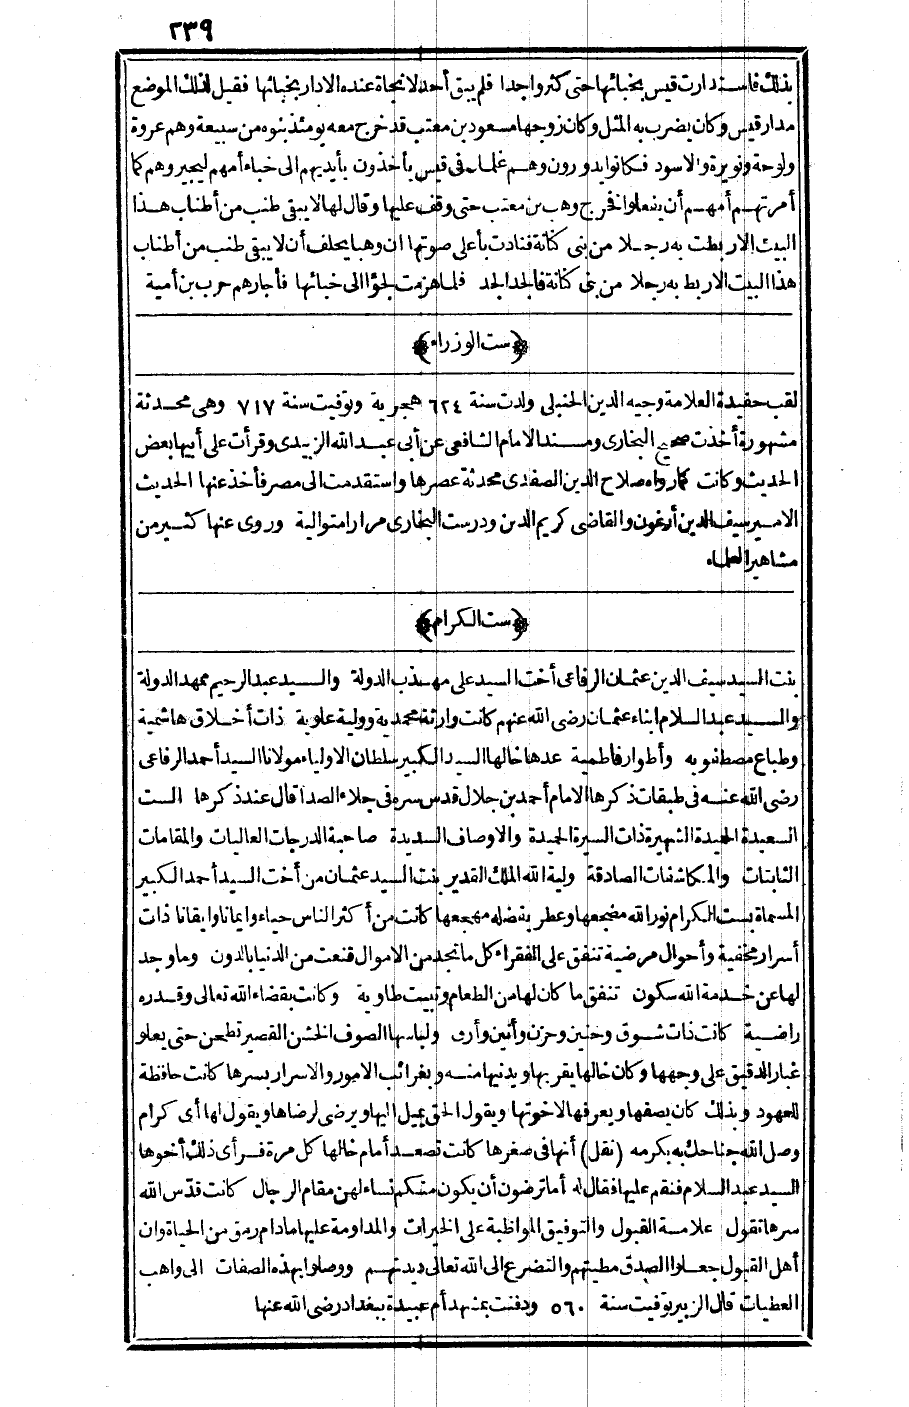 ٢٣٩
بذلك فاستدارت قيس بخبائها حتى كثروا جدا فلم يبق أحد لا نجاة عنده الا دار بخبائها فقيل لذلك الموضع
مدار قيس وكان يضرب به المثل وكان زوجها مسعود بن معتب قد خرج معه يومئذ بنوه من سبيعة وهم عروة
ولوحة ونويرة والاسود فكانوا يدورون وهم غلمان فى قيس يأخذون بأيديهم الى خباء أمهم ليجيروهم كما
أمرتهم أمهم أن يفعلوا فخرج وهب بن معتب حتى وقف عليها وقال لها لا يبقى طنب من أطناب هذا
البيت الا ربطت به رجلا من بنى كنانة فنادت بأعلى صوتها ان وهبا يحلف أن لا يبقى طنب من أطناب
هذا البيت الا ربط به رجلا من بنى كنانة فالجد الجد فلما هزمت لجؤا الى خبائها فأجارهم حرب بن أمية
﴿ست الوزراء﴾
لقب حفيدة العلامة وجيه الدين الحنبلى ولدت سنة ٦٢٤ هجرية وتوفيت سنة ٧١٧ وهى محدثة
مشهورة أخذت صحيح البخارى ومسند الامام الشافعى عن أبى عبد الله الزبيدى وقرأت على أبيها بعض
الحديث وكانت كما رواه صلاح الدين الصفدى محدثة عصرها واستقدمت الى مصر فأخذ عنها الحديث
الامير سيف الدين أرغون والقاضى كريم الدين ودرست البخارى مرارا متوالية وروى عنها كثير من
مشاهير العلماء
﴿ست الكرام﴾
بنت السيد سيف الدين عثمان الرفاعى أخت السيد على مهذب الدولة والسيد عبد الرحيم ممهد الدولة
والسيد عبد السلام ابناء عثمان رضى الله عنهم كانت وارثة محمدية وولية علوية ذات أخلاق هاشمية
وطباع مصطفويه وأطوار فاطمية عدها خالها السيد الكبير سلطان الاولياء مولانا السيد أحمد الرفاعى
رضى الله عنه فى طبقات ذكرها الامام أحمد بن جلال قدس سره فى جلاء الصدا قال عند ذكرها الست
السعيدة الحميدة الشهيرة ذات السيرة الجيدة والاوصاف السديدة صاحبة الدرجات العاليات والمقامات
الثابتات والمكاشفات الصادقة ولية الله الملك القدير بنت السيد عثمان من أخت السيد أحمد الكبير
المسماة بست الكرام نور الله مضجعها وعطر بفضله مهجعها كانت من أكثر الناس حياء وايمانا وايقانا ذات
أسرار مخفية وأحوال مرضية تنفق على الفقراء كل ما تجد من الاموال قنعت من الدنيا بالدون وما وجد
لها عن خدمة الله سكون تنفق ما كان لها من الطعام وتبيت طاوية وكانت بقضاء الله تعالى وقدره
راضية كانت ذات شوق وحنين وحزن وأنين وأرق ولباسها الصوف الخشن القصير تطحن حتى يعلو
غبار الدقيق على وجهها وكان خالها يقربها ويدنيها منه وبغرائب الامور والاسرار يسرها كانت حافظة
للعهود وبذلك كان يصفها ويعرفها لاخوتها ويقول الحق يميل اليها ويرضى لرضاها ويقول لها أى كرام
وصل الله جناحك به بكرمه (نقل) أنها فى صغرها كانت تصعد أمام خالها كل مرة فرأى ذلك أخوها
السيد عبد السلام فنقم عليها فقال له أما ترضون أن يكون منكم نساء لهن مقام الرجال كانت قدّس الله
سرها تقول علامة القبول والتوفيق المواظبة على الخيرات والمداومة عليها مادام رمق من الحياة وان
أهل القبول جعلوا الصدق مطيتهم والتضرع الى الله تعالى ديدنهم ووصلوا بهذه الصفات الى واهب
العطيات قال الزبير توفيت سنة ٥٦٠ ودفنت بمشهد أم عبيدة ببغداد رضى الله عنها